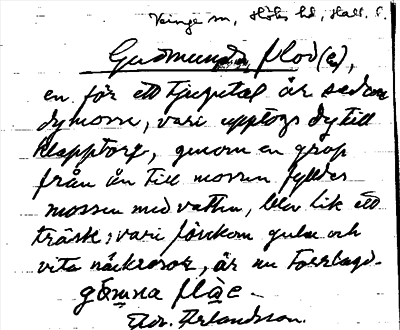 Veinge sn, Höks hd, Hall. l.
Gudmunds flod(e),
en för ett tjugutal år sedan
dymosse, vari upptogs dy till
klapptorf, genom en grop
från ån till mossen fylldes
mossen med vatten, blev lik ett
träsk, vari förekom gula och
vita näckrosor, är nu torrlagd.
gömna flåe
Edv. Arlandsson.